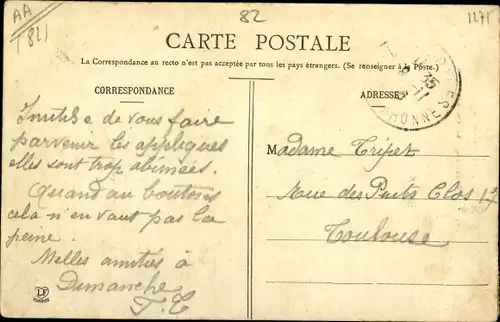 AA
(82)
82
1271
CARTE POSTALE
La Correspondance au recto n'est pas acceptée par tous les pays étrangers. (Se renseigner à la Poste.)
CORRESPONDANCE
ADRESSE
Inutile de vous faire
parvenir les appliques
elles sont trop abimées.
Quand au boutons
cela n'en vaut pas la
peine.
Milles amitiés à
Dimanche
T. C
Madame Tripet
Rue des Puits Clos 17
Toulouse
LF